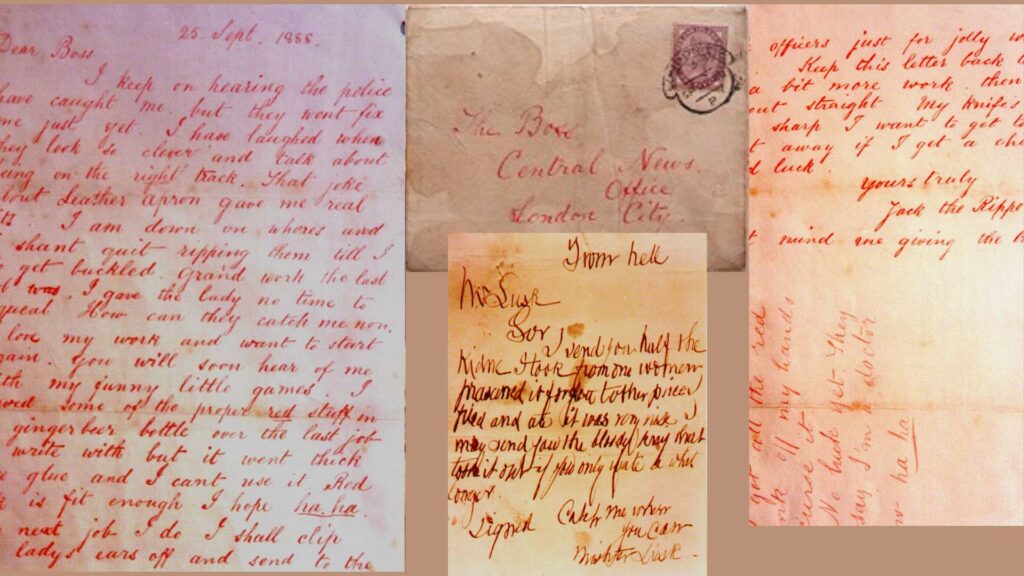 25. Sept. 1888.
Dear Boss
I keep on hearing the police
have caught me but they wont fix
me just yet. I have laughed when
they look so clever and talk about
being on the right track. That joke
about Leather apron gave me real
fits. I am down on whores and
shant quit ripping them till I
do get buckled. Grand work the last
job was. I gave the lady no time to
squeal How can they catch me now.
love my work and want to start
again. You will soon hear of me
with my funny little games. I
saved some of the proper red stuff in
ginger beer bottle over the last job
write with but it went thick
like glue and I cant use it Red
ink is fit enough I hope ha. ha.
next job I do I shall clip
ladys ears off and send to the
The Boss
Central News
Office
London City
officers just for jolly w
Keep this letter back t
a bit more work then
out straight My knife's
sharp I want to get to
t away if I get a cha
d luck.
yours truly
Jack the Rippe
t mind me giving the tr
got all the red
ink off my hands
curse it
No luck yet. They
say I'm a doctor
now ha ha
From hell
Mr Lusk
Sor
I send you half the
Kidne I took from one women
prasarved it for you tother piece I
fried and ate it was very nise I
may send you the bloody knif that
took it out if you only wate a whil
longer
Signed Catch me when
you can
Mishter Lusk